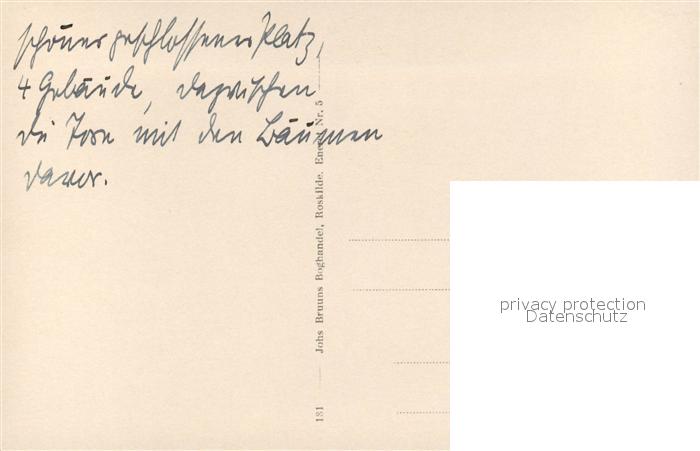 schöner geschlossener Platz,
4 Gebäude, dazwischen
die Tore mit den Bäumen
davor.
131 — Johs Bruuns Boghandel, Roskilde. Eneret Nr. 5
privacy protection
Datenschutz